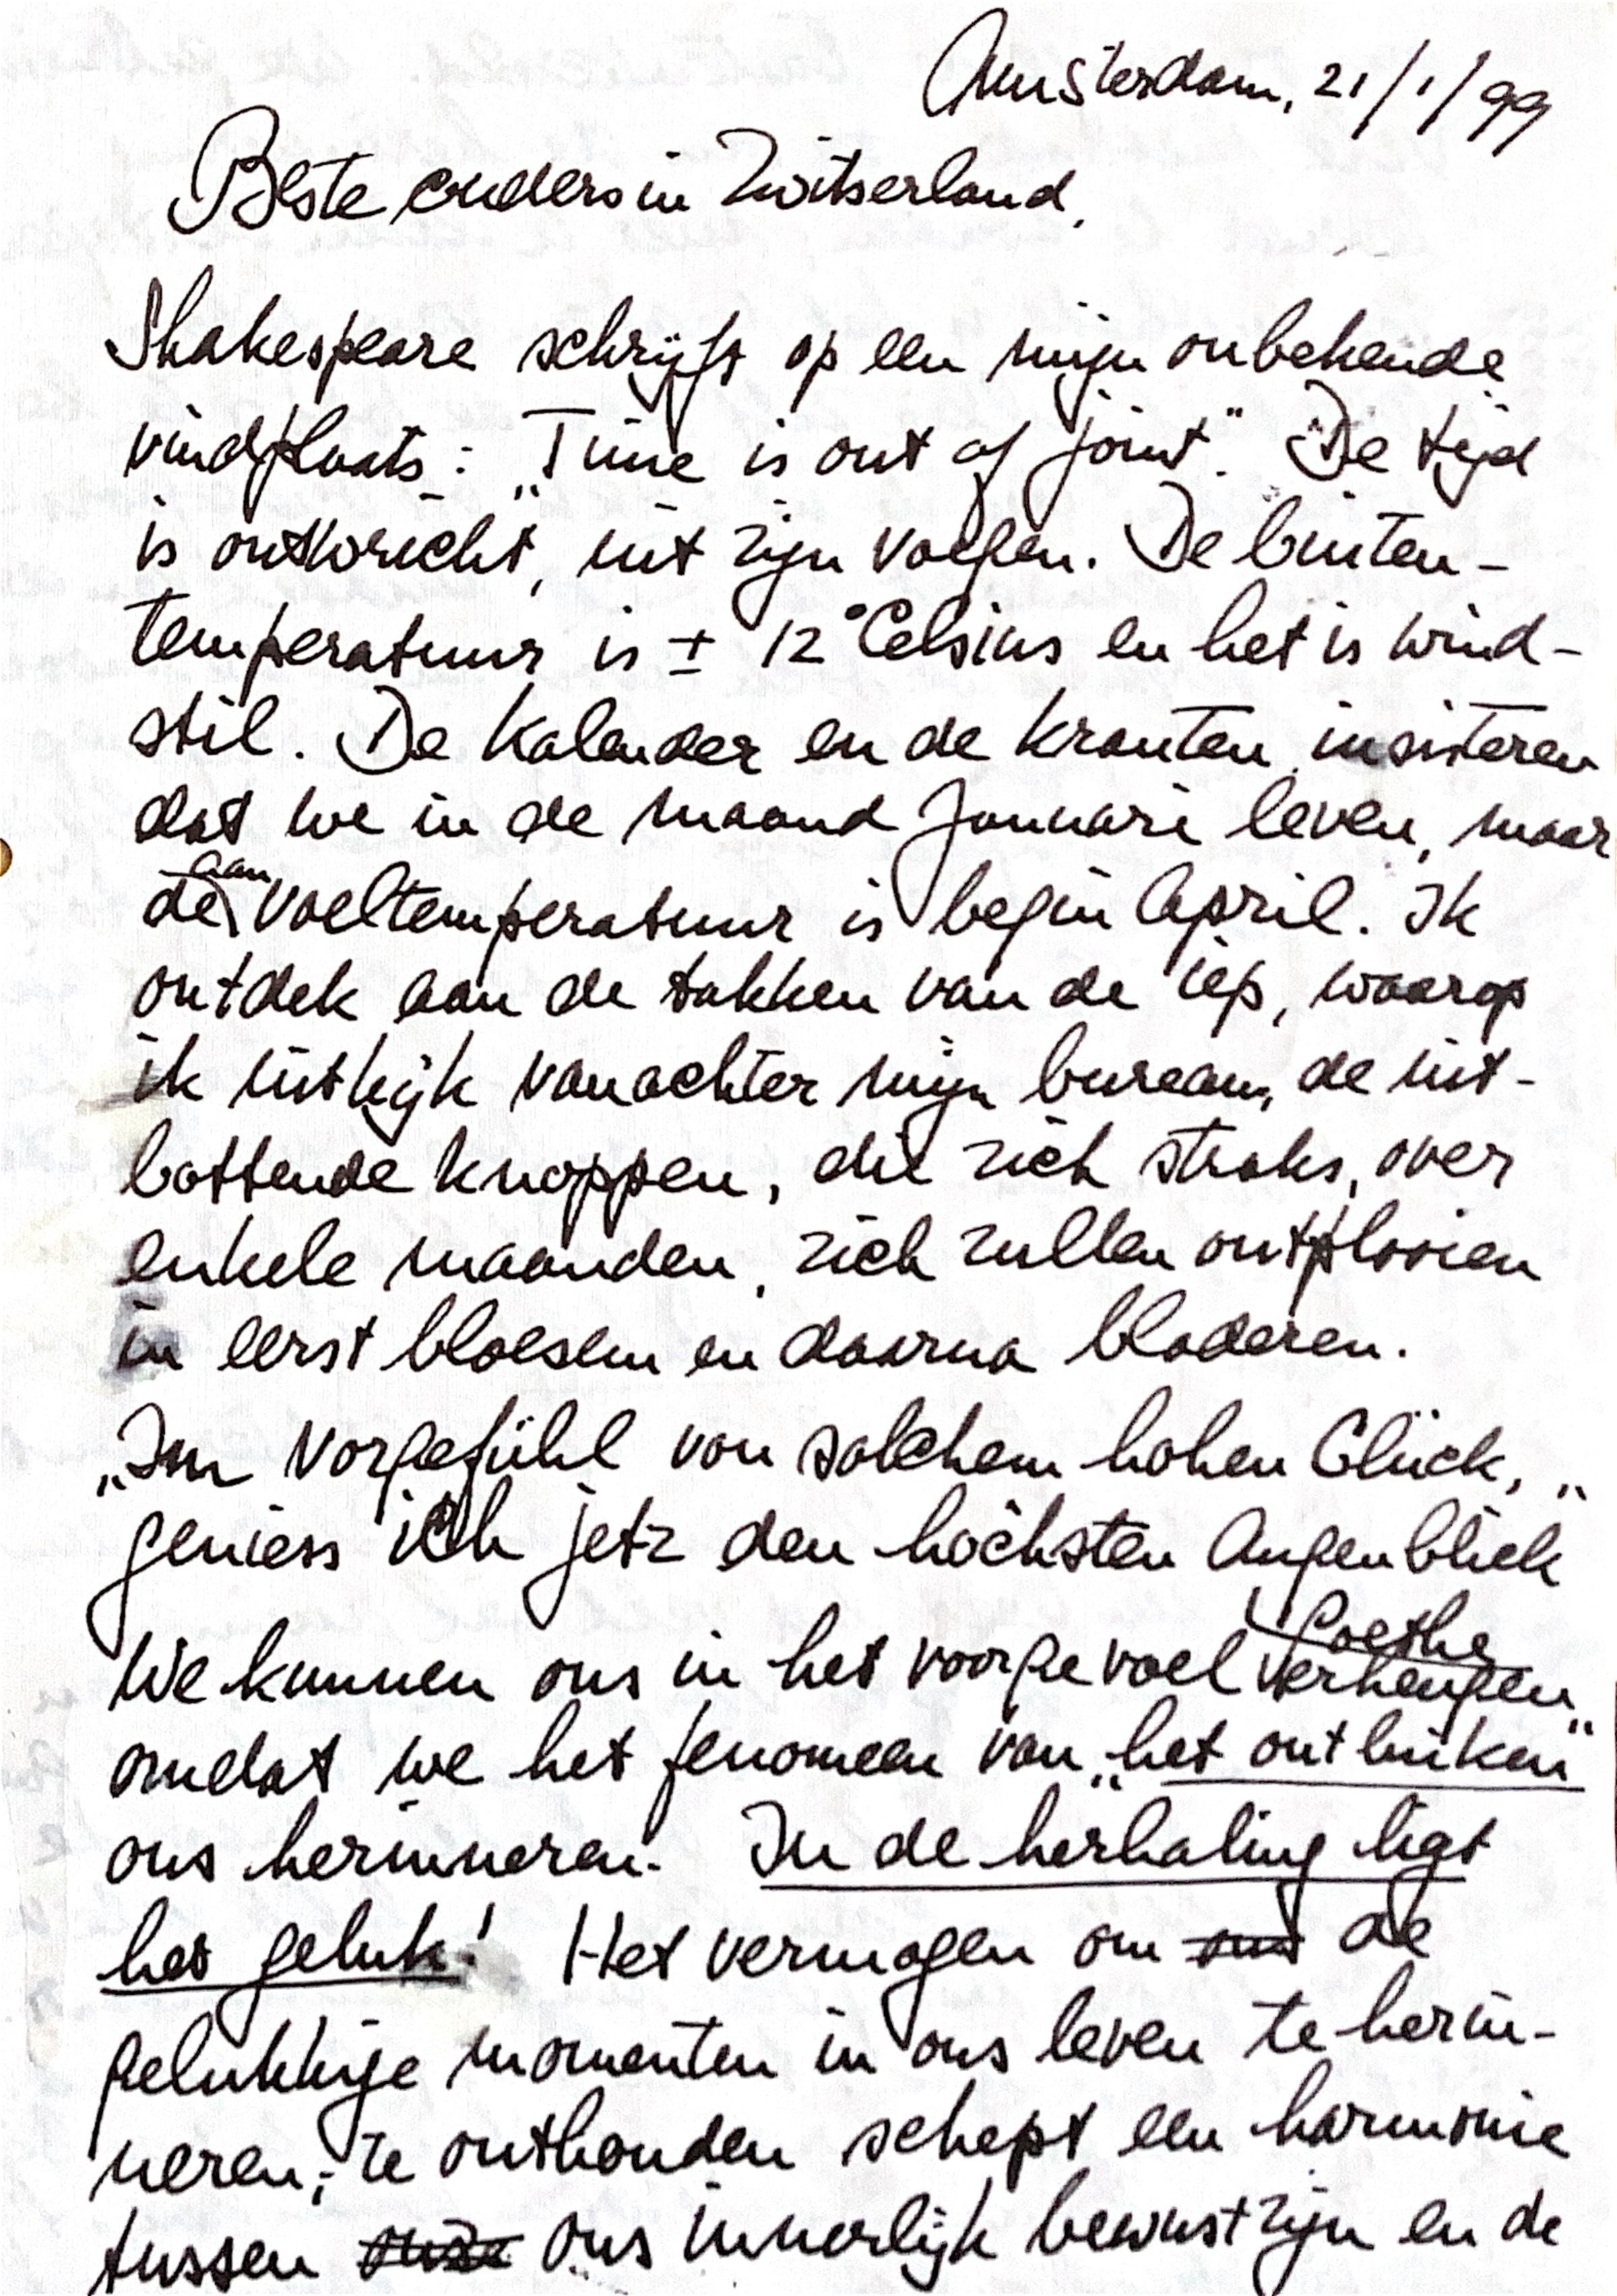 Amsterdam, 21/1/99
Beste ouders in Zwitserland,
Shakespeare schrijft op een mijn onbekende
vindplaats: „Time is out of joint". De tijd
is ontwricht, uit zijn voegen. De buiten-
temperatuur is ± 12° Celsius en het is wind-
stil. De kalender en de kranten insisteren
dat we in de maand Januari leven, maar
de aanvoeltemperatuur is begin April. Ik
ontdek aan de takken van de iep, waarop
ik uitkijk vanachter mijn bureau, de uit-
bottende knoppen, die zich straks, over
enkele maanden, zich zullen ontplooien
in eerst bloesem en daarna bladeren.
„Im Vorgefühl von solchem hohen Glück,
geniess ich jetz den höchsten Augenblick"
Goethe
We kunnen ons in het voorgevoel verheugen,
omdat we het fenomeen van „het ontluiken"
ons herinneren. In de herhaling ligt
het geluk! Het vermogen om ons de
gelukkige momenten in ons leven te herin-
neren; te onthouden schept een harmonie
tussen onze ons innerlijk bewustzijn en de